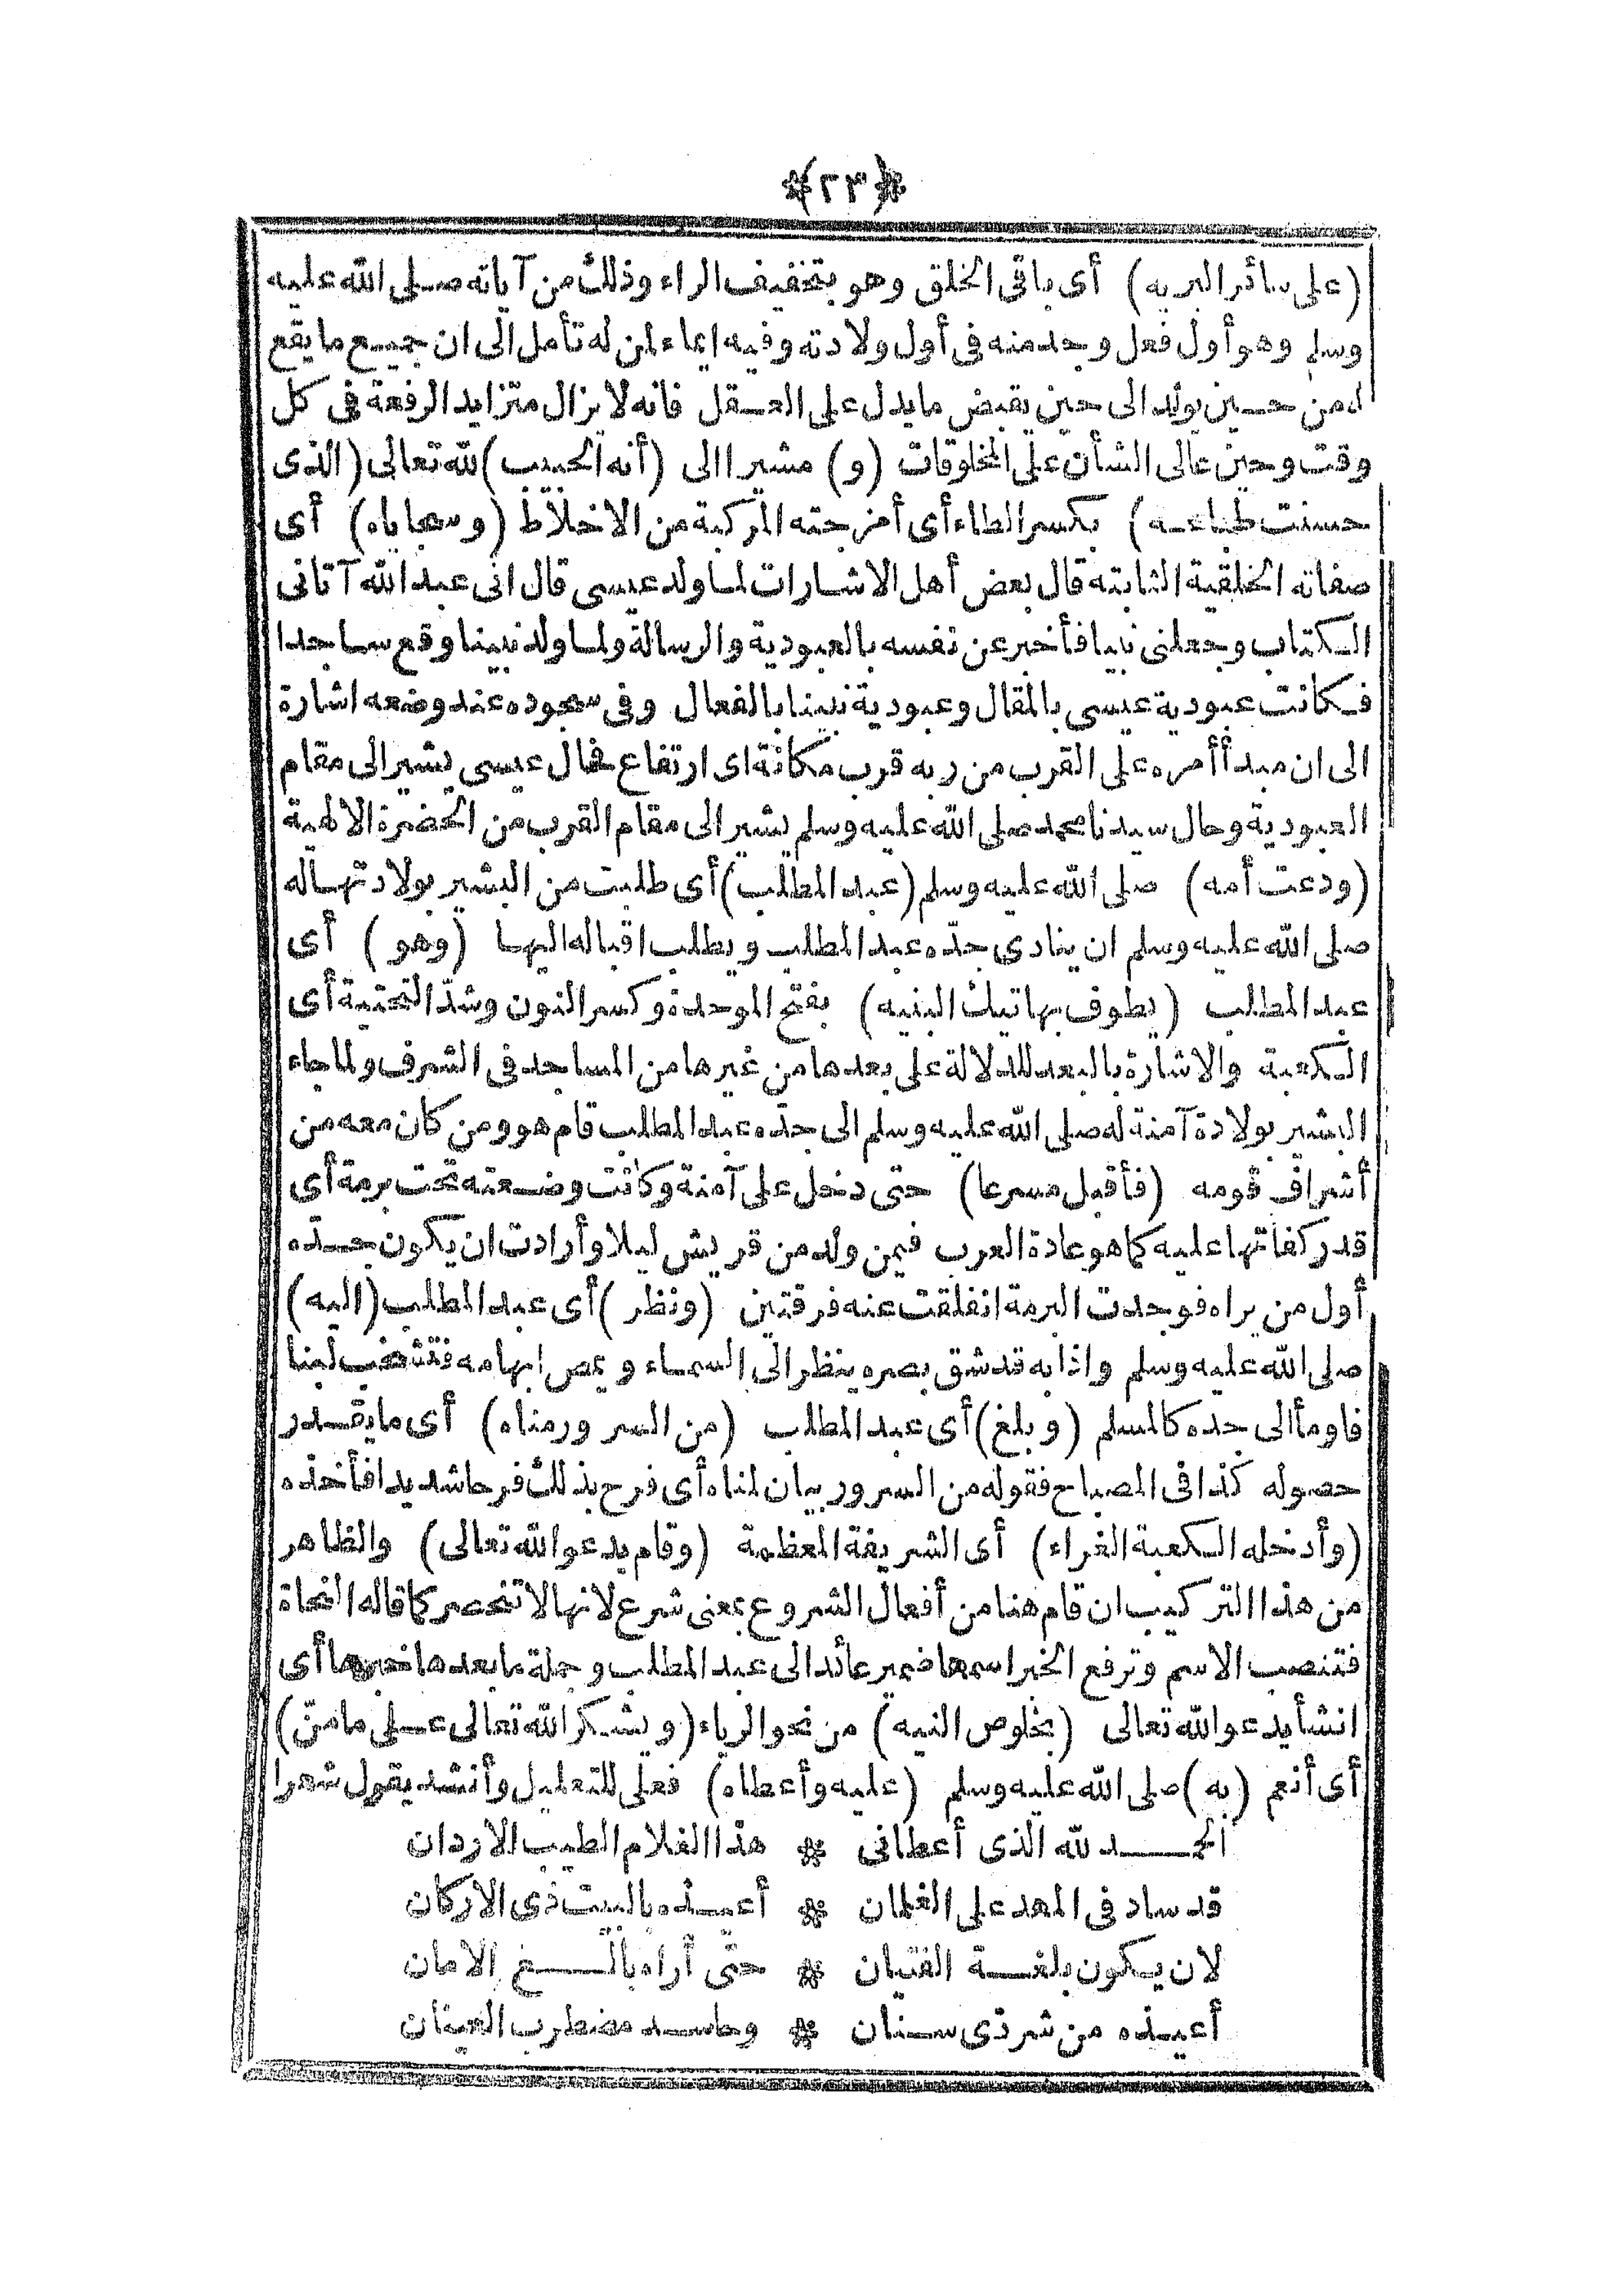 (٢٣)
(على سائر البريه) أى باقى الخلق وهو بتخفيف الراء وذلك من آياته صلى الله عليه
وسلم وهو أول فعل وجد منه فى أول ولادته وفيه ايماء لمن له تأمل الى ان جميع ما يقع
له من حين يولد الى حين يقبض ما يدل على العقل فانه لا يزال متزايد الرفعة فى كل
وقت وحين عالى الشأن على المخلوقات (و) مشيرا الى (أنه الحبيب) لله تعالى (الذى
حسنت طباعه) بكسر الطاء أى أمزجته المركبة من الاخلاط (وسجاياه) أى
صفاته الخلقية الثابتة قال بعض أهل الاشارات لما ولد عيسى قال انى عبد الله آتانى
الكتاب وجعلنى نبيا فأخبر عن نفسه بالعبودية والرسالة ولما ولد نبينا وقع ساجدا
فكانت عبودية عيسى بالمقال وعبودية نبينا بالفعال وفى سجوده عند وضعه اشارة
الى ان مبدأ أمره على القرب من ربه قرب مكانة اى ارتفاع فحال عيسى يشير الى مقام
العبودية وحال سيدنا محمد صلى الله عليه وسلم يشير الى مقام القرب من الحضرة الالهية
(ودعت أمه) صلى الله عليه وسلم (عبد المطلب) أى طلبت من البشير بولادتها له
صلى الله عليه وسلم ان ينادى جدّه عبد المطلب ويطلب اقباله اليها (وهو) أى
عبد المطلب (يطوف بهاتيك البنيه) بفتح الموحدة وكسر النون وشدّ التحتية أى
الكعبة والاشارة بالبعد للدلالة على بعدها من غيرها من المساجد فى الشرف ولما جاء
البشير بولادة آمنة له صلى الله عليه وسلم الى جدّه عبد المطلب قام هو ومن كان معه من
أشراف قومه (فأقبل مسرعا) حتى دخل على آمنة وكانت وضعته تحت برمة أى
قدر كفاتها عليه كما هو عادة العرب فيمن ولد من قريش ليلا وأرادت ان يكون جدّه
أول من يراه فوجدت البرمة انفلقت عنه فرقتين (ونظر) أى عبد المطلب (اليه)
صلى الله عليه وسلم واذا به قد شق بصره ينظر الى السماء ويمص ابهامه فتشخب لبنا
فاومأ الى جده كالمسلم (وبلغ) أى عبد المطلب (من السرور مناه) أى ما يقدر
حصوله كذا فى المصباح فقوله من السرور بيان لمناه أى فرح بذلك فرحا شديدا فأخذه
(وأدخله الكعبة الغراء) أى الشريفة المعظمة (وقام يدعو الله تعالى) والظاهر
من هذا التركيب ان قام هنا من أفعال الشروع بمعنى شرع لانها لا تنحصر كما قاله النحاة
فتنصب الاسم وترفع الخبر اسمها ضمير عائد الى عبد المطلب وجملة ما بعدها خبرها أى
انشأ يدعو الله تعالى (بخلوص النيه) من نحو الرياء (ويشكر الله تعالى على ما منّ)
أى أنعم (به) صلى الله عليه وسلم (عليه وأعطاه) فعلى للتعليل وأنشد يقول شعرا
الحمد لله الذى أعطانى * هذا الغلام الطيب الاردان
قد ساد فى المهد على الغلمان * أعيذه بالبيت ذى الاركان
لان يكون بلغة الفتيان * حتى أراه بالغ الامان
أعيذه من شر ذى سنان * وحاسد مضطرب العينان